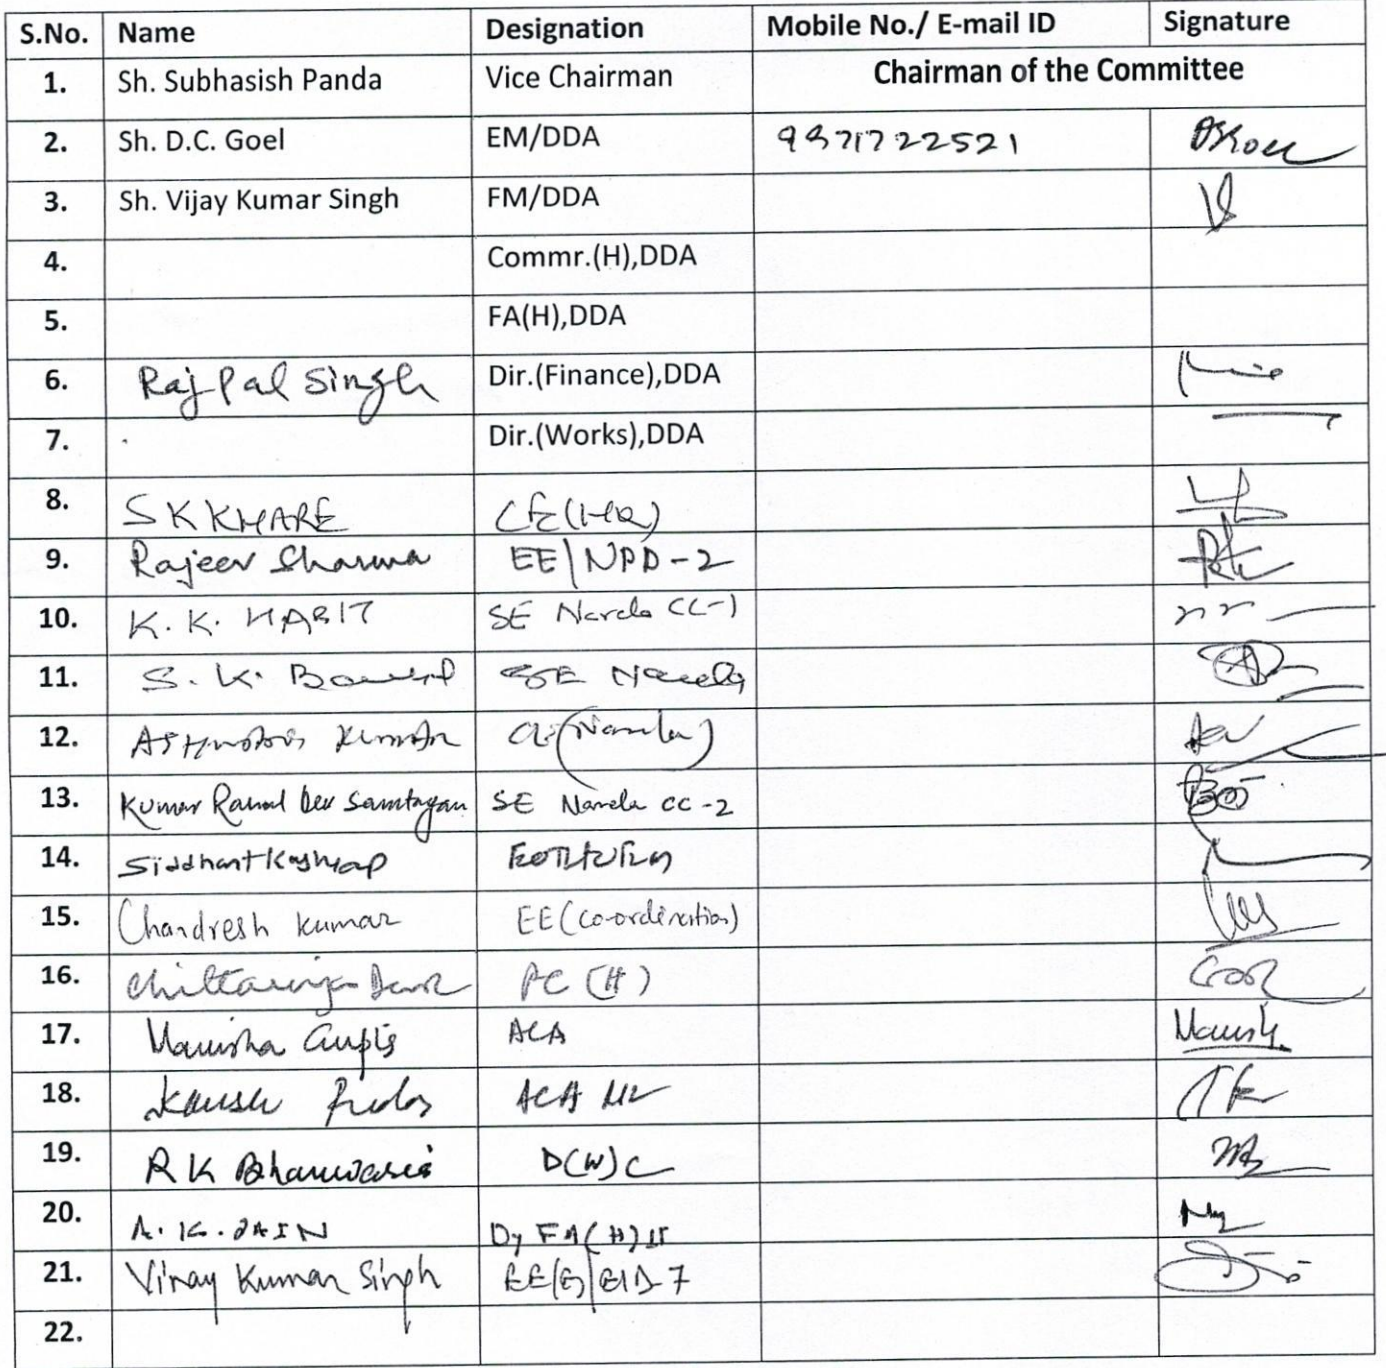 S.No. Name Designation Mobile No./ E-mail ID Signature
1. Sh. Subhasish Panda Vice Chairman Chairman of the Committee
2. Sh. D.C. Goel EM/DDA 9971722521
3. Sh. Vijay Kumar Singh FM/DDA
4. Commr.(H),DDA
5. FA(H),DDA
6. Rajpal Singh Dir.(Finance),DDA
7. Dir.(Works),DDA
8. S K KHARE CE(HQ)
9. Rajeev Sharma EE/NPD-2
10. K. K. SE Narela CC-1
11. S. K. SE Narela
12. Kumar (Narela)
13. Kumar Dev SE Narela CC-2
14. Siddhant Kashyap
15. Chandresh Kumar EE(Co-ordination)
16. PC (H)
17. Manisha Gupta ACA
18. ACA
19. R K D(W)C
20. A. K. JAIN Dy FA(H) II
21. Vinay Kumar Singh EE(E)
22.